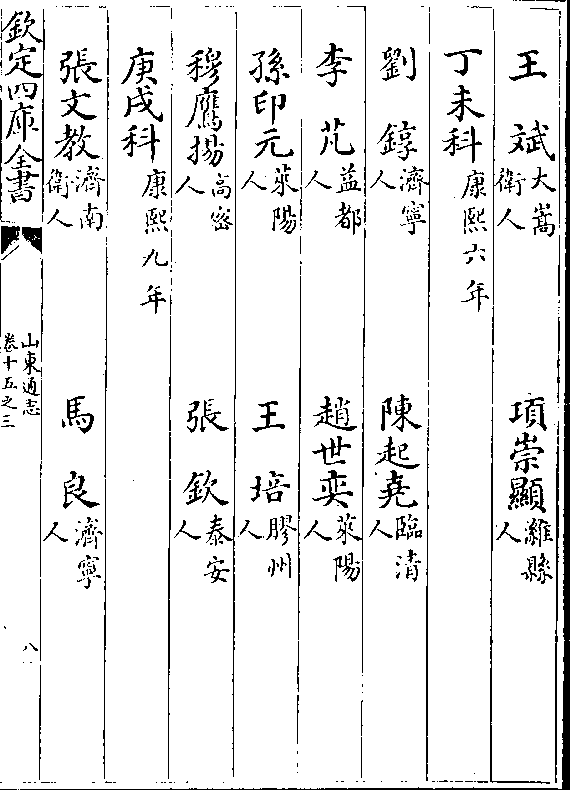 王　斌大嵩衛人　項崇顯濰縣人
丁未科康熙六年
劉　錞濟寧人　陳起堯臨清人
李　芃益都人　趙世奕萊陽人
孫印元萊陽人　王　培膠州人
穆鷹揚高密人　張　欽泰安人
庚戌科康熙九年
張文教濟南衛人　馬　良濟寧人
欽定四庫全書　山東通志卷十五之三　八